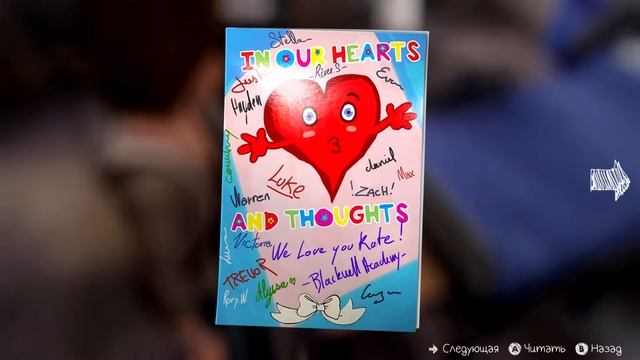 Stella
IN OUR HEARTS
Just
-River.S-
Evan
Hayden
Courtney
daniel
Max
Luke
!ZACH!
Warren
AND THOUGHTS
Victoria
We Love you Kate!
TREVOR
-Blackwell Academy-
Rory W.
Alyssa
Следующая
A Читать
B Назад